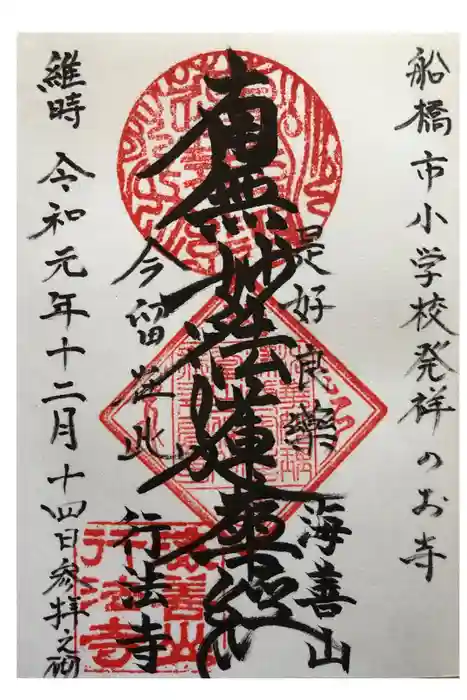 船橋市小学校発祥のお寺
是好良薬
海善山
南無妙法蓮華經
今留在此
行法寺
維時 令和元年十二月十四日参拝之砌
海善山
行法寺